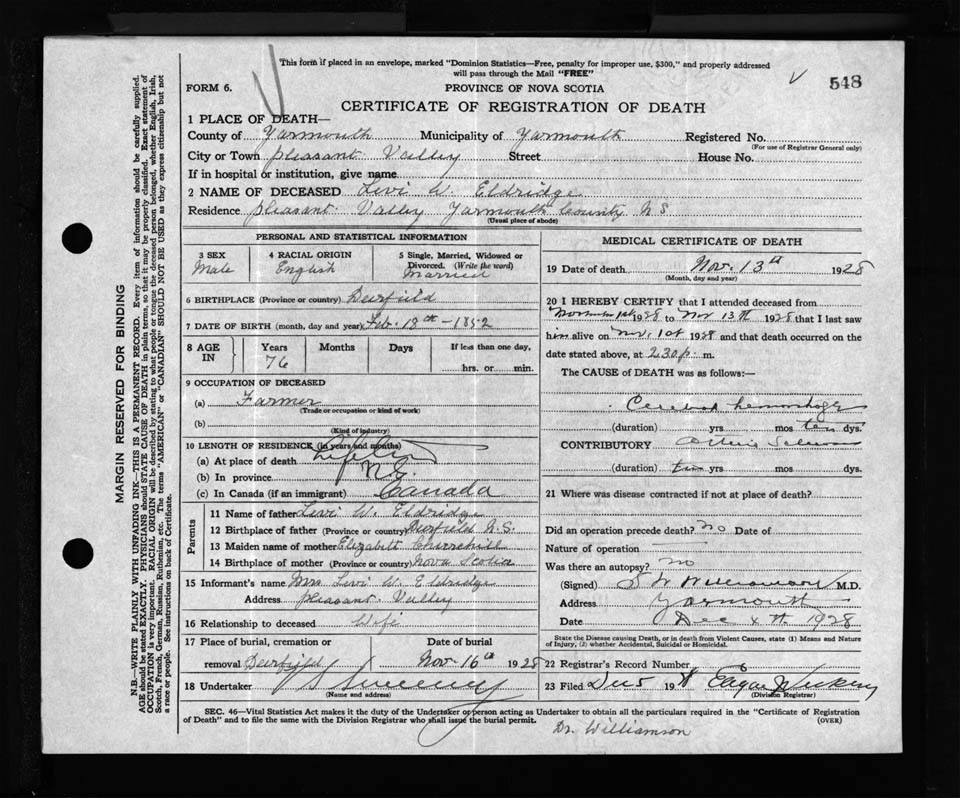 This form if placed in an envelope, marked "Dominion Statistics—Free, penalty for improper use, $300," and properly addressed
will pass through the Mail "FREE"
548
FORM 6.
PROVINCE OF NOVA SCOTIA
CERTIFICATE OF REGISTRATION OF DEATH
1 PLACE OF DEATH—
County of Yarmouth Municipality of Yarmouth Registered No.
(For use of Registrar General only)
City or Town Pleasant Valley Street House No.
If in hospital or institution, give name
2 NAME OF DECEASED Levi W. Eldridge
Residence Pleasant Valley Yarmouth County N S
(Usual place of abode)
PERSONAL AND STATISTICAL INFORMATION
3 SEX
Male
4 RACIAL ORIGIN
English
5 Single, Married, Widowed or
Divorced. (Write the word)
Married
6 BIRTHPLACE (Province or country) Deerfield
7 DATE OF BIRTH (month, day and year) Feb. 18th - 1852
8 AGE IN
Years Months Days If less than one day,
76
hrs. or min.
9 OCCUPATION OF DECEASED
(a) Farmer
(Trade or occupation or kind of work)
(b)
(Kind of industry)
10 LENGTH OF RESIDENCE (in years and months)
(a) At place of death
(b) In province N.S.
(c) In Canada (if an immigrant) Canada
Parents
11 Name of father Levi W. Eldridge
12 Birthplace of father (Province or country) Deerfield N.S.
13 Maiden name of mother Elizabeth Churchill
14 Birthplace of mother (Province or country) Nova Scotia
15 Informant's name Mrs Levi W. Eldridge
Address Pleasant Valley
16 Relationship to deceased Wife
17 Place of burial, cremation or Date of burial
removal Deerfield Nov. 16th 1928
18 Undertaker Sweeney
(Name and address)
MEDICAL CERTIFICATE OF DEATH
19 Date of death Nov. 13th 1928
(Month, day and year)
20 I HEREBY CERTIFY that I attended deceased from
November 1st 1928 to Nov 13th 1928 that I last saw
him alive on Nov. 1st 1928 and that death occurred on the
date stated above, at 2.30 p. m.
The CAUSE of DEATH was as follows:—
Cerebral hemorrhage
(duration) yrs. mos ten dys.
CONTRIBUTORY
(duration) ten yrs mos dys.
21 Where was disease contracted if not at place of death?
Did an operation precede death? no Date of
Nature of operation
Was there an autopsy? no
(Signed) S W Williamson M.D.
Address Yarmouth
Date Dec 4th 1928
State the Disease causing Death, or in death from Violent Causes, state (1) Means and Nature
of Injury, (2) whether Accidental, Suicidal or Homicidal.
22 Registrar's Record Number
23 Filed Dec 5 1928
(Division Registrar)
SEC. 46—Vital Statistics Act makes it the duty of the Undertaker or person acting as Undertaker to obtain all the particulars required in the "Certificate of Registration
of Death" and to file the same with the Division Registrar who shall issue the burial permit. (OVER)
Dr. Williamson
MARGIN RESERVED FOR BINDING
N.B.—WRITE PLAINLY WITH UNFADING INK—THIS IS A PERMANENT RECORD. Every item of information should be carefully supplied.
AGE should be stated EXACTLY. PHYSICIANS should STATE CAUSE OF DEATH in plain terms, so that it may be properly classified. Exact statement of
OCCUPATION is very important. RACIAL ORIGIN will be described by stating to what people or tongue the deceased person belonged, whether English, Irish,
Scotch, French, German, Russian, Ruthenian, etc. The terms "AMERICAN" or "CANADIAN" SHOULD NOT BE USED as they express citizenship but not
a race or people. See instructions on back of Certificate.